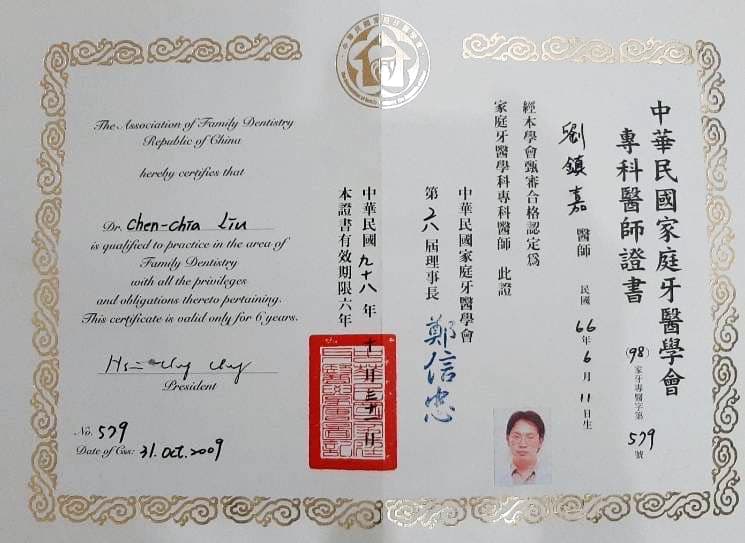 中華民國家庭牙醫學會
The Association of Family Dentistry
Republic of China
hereby certifies that
Dr. Chen-chia Liu
is qualified to practice in the area of
Family Dentistry
with all the privileges
and obligations thereto pertaining.
This certificate is valid only for 6 years.
President
No. 579
Date of Css: 31. Oct. 2009
中華民國家庭牙醫學會
專科醫師證書
(98)家牙專醫字第579號
劉鎮嘉 醫師 民國66年6月11日生
經本學會甄審合格認定為
家庭牙醫學科專科醫師 此證
中華民國家庭牙醫學會
第六屆理事長 鄭信忠
中華民國九十八年十月三十日
本證書有效期限六年